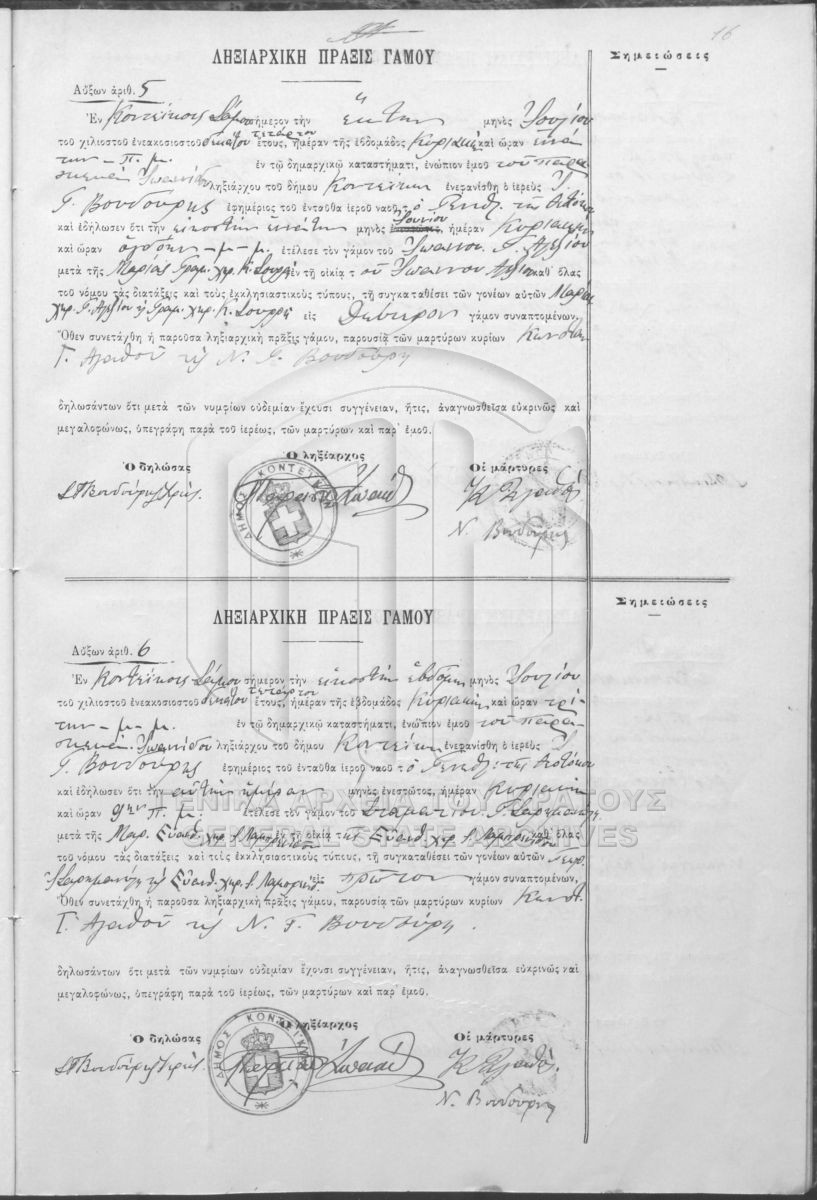 16
ΛΗΞΙΑΡΧΙΚΗ ΠΡΑΞΙΣ ΓΑΜΟΥ
Σημειώσεις
Αὔξων ἀριθ. 5
Ἐν Κοντεΐκοις Σάμου σήμερον τὴν ἕκτην μηνὸς Ἰουλίου
τοῦ χιλιοστοῦ ἐνεακοσιοστοῦ δεκάτου τετάρτου ἔτους, ἡμέραν τῆς ἑβδομάδος Κυριακὴν καὶ ὥραν
την - π. μ. ἐν τῷ δημαρχικῷ καταστήματι, ἐνώπιον ἐμοῦ τοῦ Παρα
σκευᾶ Ἰωαννίδου ληξιάρχου τοῦ δήμου Κοντεΐκων ἐνεφανίσθη ὁ ἱερεὺς
Γ. Βουδούρης ἐφημέριος τοῦ ἐνταῦθα ἱεροῦ ναοῦ τ Γενεθ. τῆς Θεοτόκου
καὶ ἐδήλωσεν ὅτι τὴν εἰκοστὴν ἐνάτην μηνὸς Ἰουνίου, ἡμέραν Κυριακὴν
καὶ ὥραν ὀγδόην - μ - μ. ἐτέλεσε τὸν γάμον τοῦ Ἰωάννου Γ.
μετὰ τῆς Μαρίας Γραμ. χηρ. Κ. ἐν τῇ οἰκίᾳ τοῦ Ἰωάννου καθ' ὅλας
τοῦ νόμου τὰς διατάξεις καὶ τοὺς ἐκκλησιαστικοὺς τύπους, τῇ συγκαταθέσει τῶν γονέων αὐτῶν Μαρίας
χηρ. Γ. Γραμ. χηρ. Κ. εἰς δεύτερον γάμον συναπτομένων,
Ὅθεν συνετάχθη ἡ παροῦσα ληξιαρχικὴ πρᾶξις γάμου, παρουσίᾳ τῶν μαρτύρων κυρίων Κωνστ.
Γ. Ἀγαθοῦ τῆς Ν. Γ. Βουδούρη
δηλωσάντων ὅτι μετὰ τῶν νυμφίων οὐδεμίαν ἔχουσι συγγένειαν, ἥτις, ἀναγνωσθεῖσα εὐκρινῶς καὶ
μεγαλοφώνως, ὑπεγράφη παρὰ τοῦ ἱερέως, τῶν μαρτύρων καὶ παρ' ἐμοῦ.
Ὁ δηλώσας
Ὁ ληξίαρχος
Οἱ μάρτυρες
ΔΗΜΟΣ ΚΟΝΤΕΪΚΩΝ
Ν. Βουδούρης
ΛΗΞΙΑΡΧΙΚΗ ΠΡΑΞΙΣ ΓΑΜΟΥ
Σημειώσεις
Αὔξων ἀριθ. 6
Ἐν Κοντεΐκοις Σάμου σήμερον τὴν εἰκοστὴν ἑβδόμην μηνὸς Ἰουλίου
τοῦ χιλιοστοῦ ἐνεακοσιοστοῦ δεκάτου τετάρτου ἔτους, ἡμέραν τῆς ἑβδομάδος Κυριακὴν καὶ ὥραν τρί-
την - μ - μ. ἐν τῷ δημαρχικῷ καταστήματι, ἐνώπιον ἐμοῦ τοῦ Παρα-
σκευᾶ Ἰωαννίδου ληξιάρχου τοῦ δήμου Κοντεΐκων ἐνεφανίσθη ὁ ἱερεὺς
Γ. Βουδούρης ἐφημέριος τοῦ ἐνταῦθα ἱεροῦ ναοῦ τ Γενεθλ: τῆς Θεοτόκου
καὶ ἐδήλωσεν ὅτι τὴν αὐτὴν ἡμέραν μηνὸς ἐνεστῶτος, ἡμέραν Κυριακὴν
καὶ ὥραν 9ην π. μ. ἐτέλεσε τὸν γάμον τοῦ Σταματίου Γ.
μετὰ τῆς Μαρ. χηρ. ἐν τῇ οἰκίᾳ τῆς χηρ. καθ' ὅλας
τοῦ νόμου τὰς διατάξεις καὶ τοὺς ἐκκλησιαστικοὺς τύπους, τῇ συγκαταθέσει τῶν γονέων αὐτῶν
χηρ. εἰς πρῶτον γάμον συναπτομένων,
Ὅθεν συνετάχθη ἡ παροῦσα ληξιαρχικὴ πρᾶξις γάμου, παρουσίᾳ τῶν μαρτύρων κυρίων Κωνστ.
Γ. Ἀγαθοῦ τῆς Ν. Γ. Βουδούρη.
δηλωσάντων ὅτι μετὰ τῶν νυμφίων οὐδεμίαν ἔχουσι συγγένειαν, ἥτις, ἀναγνωσθεῖσα εὐκρινῶς καὶ
μεγαλοφώνως, ὑπεγράφη παρὰ τοῦ ἱερέως, τῶν μαρτύρων καὶ παρ' ἐμοῦ.
Ὁ δηλώσας
Ὁ ληξίαρχος
Οἱ μάρτυρες
ΔΗΜΟΣ ΚΟΝΤΕΪΚΩΝ
Ν. Βουδούρης
ΓΕΝΙΚΑ ΑΡΧΕΙΑ ΤΟΥ ΚΡΑΤΟΥΣ
GENERAL STATE ARCHIVES